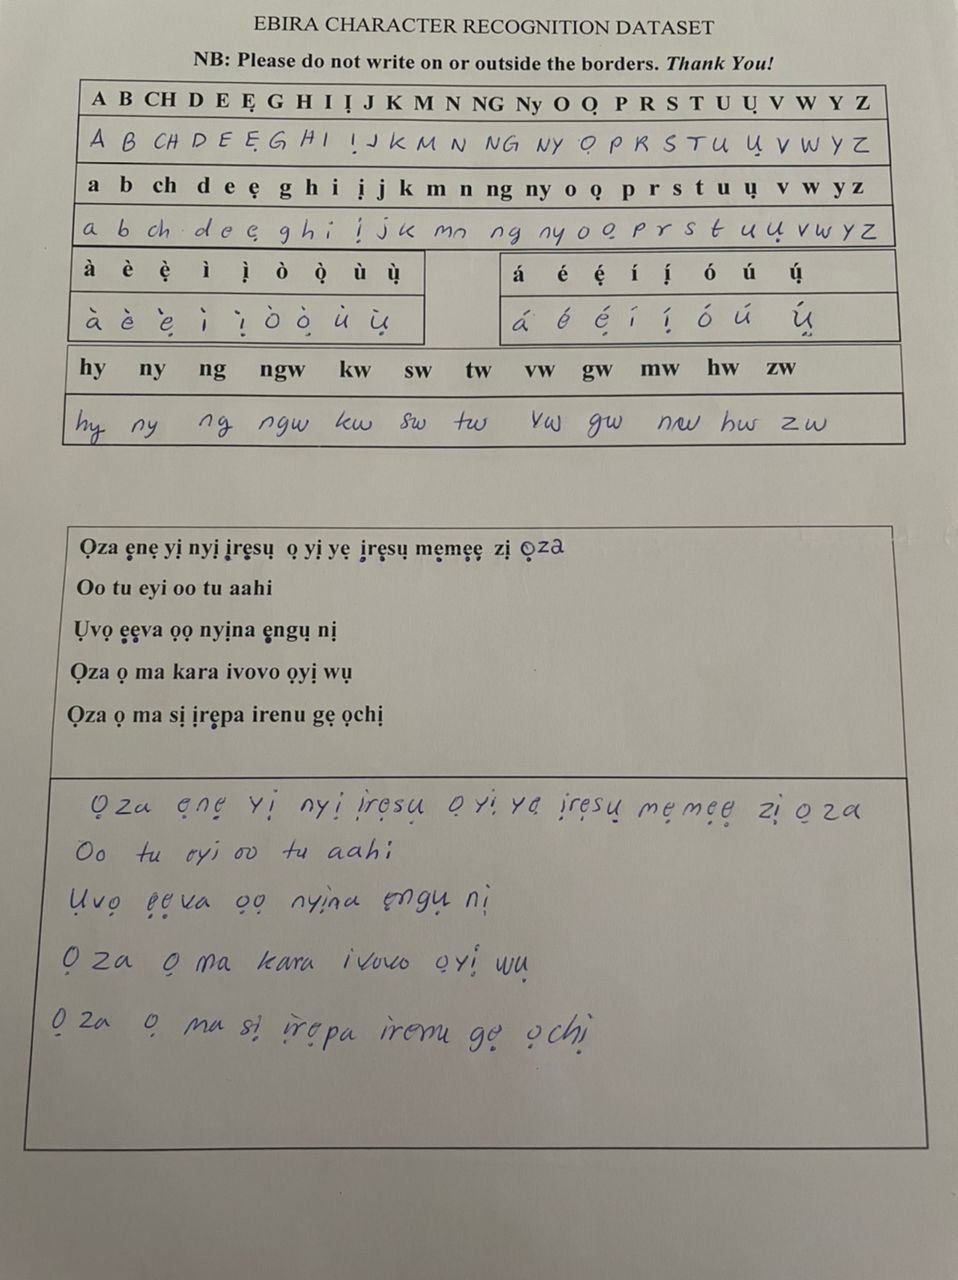 EBIRA CHARACTER RECOGNITION DATASET
NB: Please do not write on or outside the borders. Thank You!
A B CH D E Ẹ G H I Ị J K M N NG Ny O Ọ P R S T U Ụ V W Y Z
A B CH D E Ẹ G H I Ị J K M N NG NY Ọ P R S T U Ụ V W Y Z
a b ch d e ẹ g h i ị j k m n ng ny o ọ p r s t u ụ v w y z
a b ch d e ẹ g h i ị j k m n ng ny o ọ p r s t u ụ v w y z
à è ẹ̀ ì ị̀ ò ọ̀ ù ụ̀ á é ẹ́ í ị́ ó ú ụ́
à è ẹ̀ ì ị̀ ò ọ̀ ù ụ̀ á é ẹ́ í ị́ ó ú ụ́
hy ny ng ngw kw sw tw vw gw mw hw zw
hy ny ng ngw kw sw tw vw gw mw hw zw
Ọza ẹnẹ yị nyị ịrẹsụ ọ yị yẹ ịrẹsụ mẹmẹẹ zị ọza
Oo tu eyi oo tu aahi
Ụvọ ẹẹva ọọ nyịna ẹngụ nị
Ọza ọ ma kara ivovo ọyị wụ
Ọza ọ ma sị ịrẹpa irenu gẹ ọchị
Ọza ẹnẹ yị nyị ịrẹsụ ọ yị yẹ ịrẹsụ mẹmẹẹ zị ọza
Oo tu eyi oo tu aahi
Ụvọ ẹẹva ọọ nyịna ẹngụ nị
Ọza ọ ma kara ivovo ọyị wụ
Ọza ọ ma sị ịrẹpa irenu gẹ ọchị